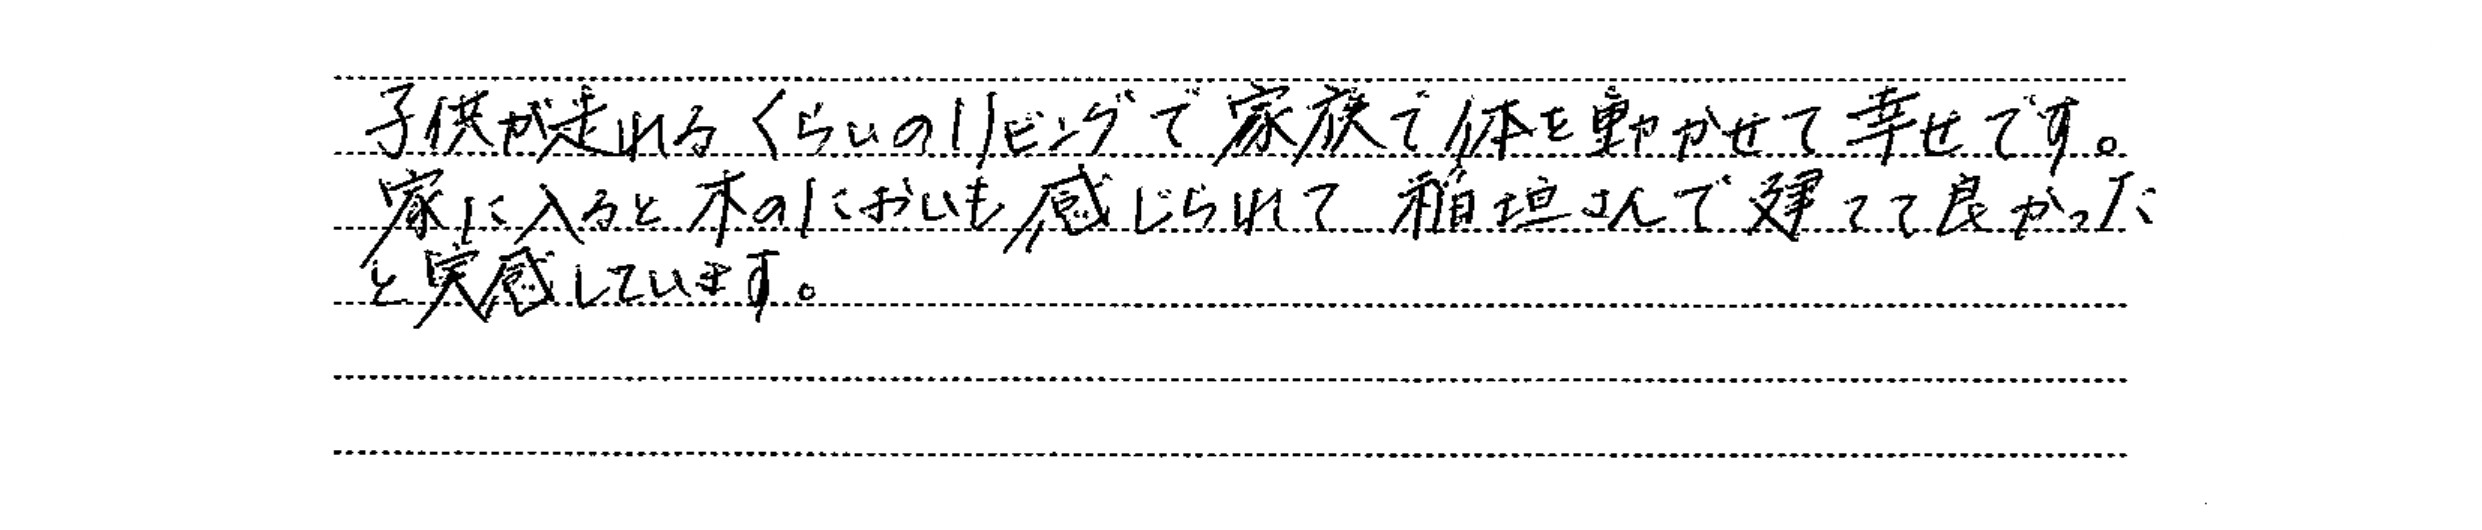 子供が走れるくらいのリビングで家族で体を動かせて幸せです。
家に入ると木のにおいも感じられて稲垣さんで建てて良かった
と実感しています。